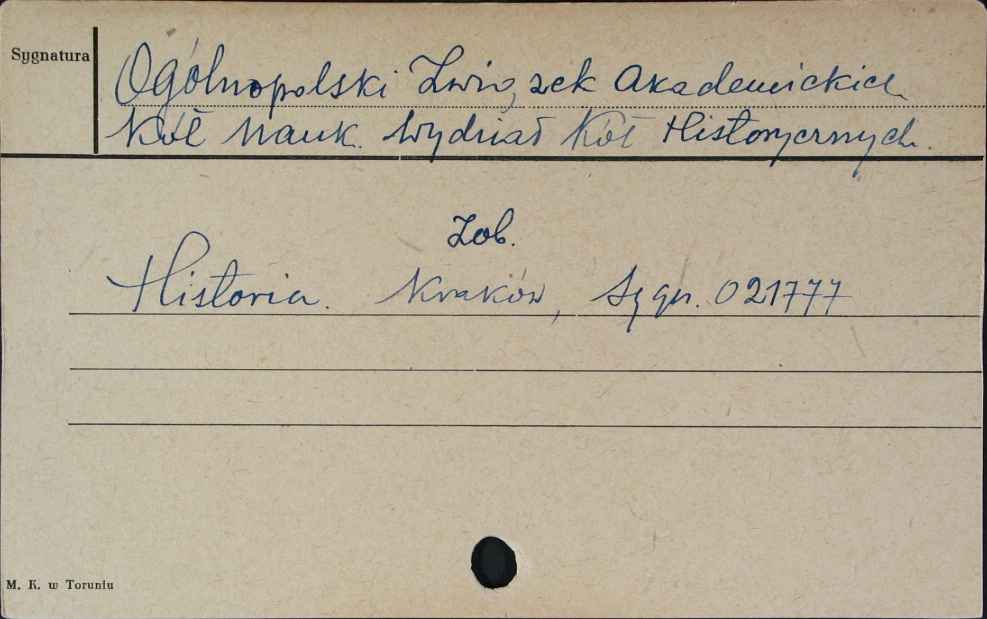 Sygnatura
Ogólnopolski Związek Akademickich
Kół Nauk. Wydział Kół Historycznych.
Zob.
Historia. Kraków, Sygn. 021777
M. K. w Toruniu